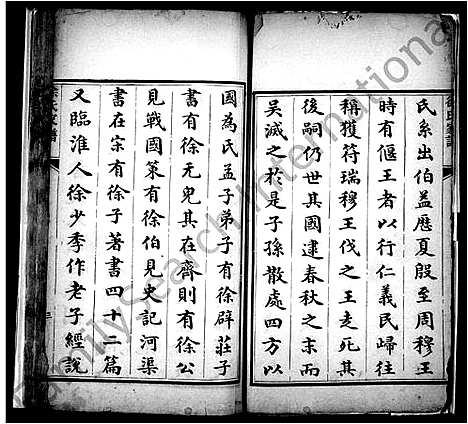 氏系出伯益歷夏殷至周穆王
時有偃王者以行仁義民歸往
稱獲符瑞穆王伐之王走死其
後嗣仍世其國逮春秋之末而
吴滅之於是子孫散處四方以
國為氏孟子弟子有徐辟莊子
書有徐无鬼其在齊則有徐公
見戰國策有徐伯見史記河渠
書在宋有徐子著書四十二篇
又臨淮人徐少季作老子經說
FamilySearch International